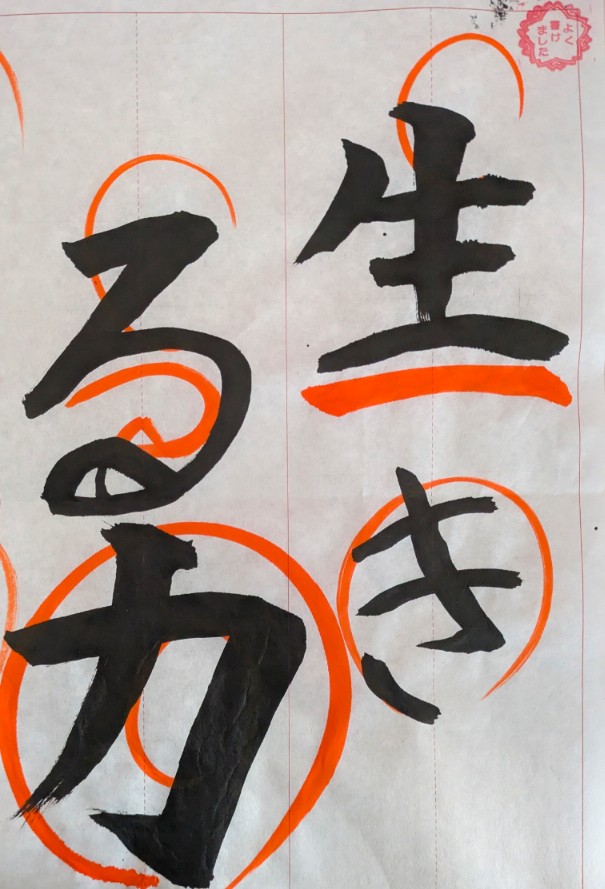 生き
る力
よく
書け
ました